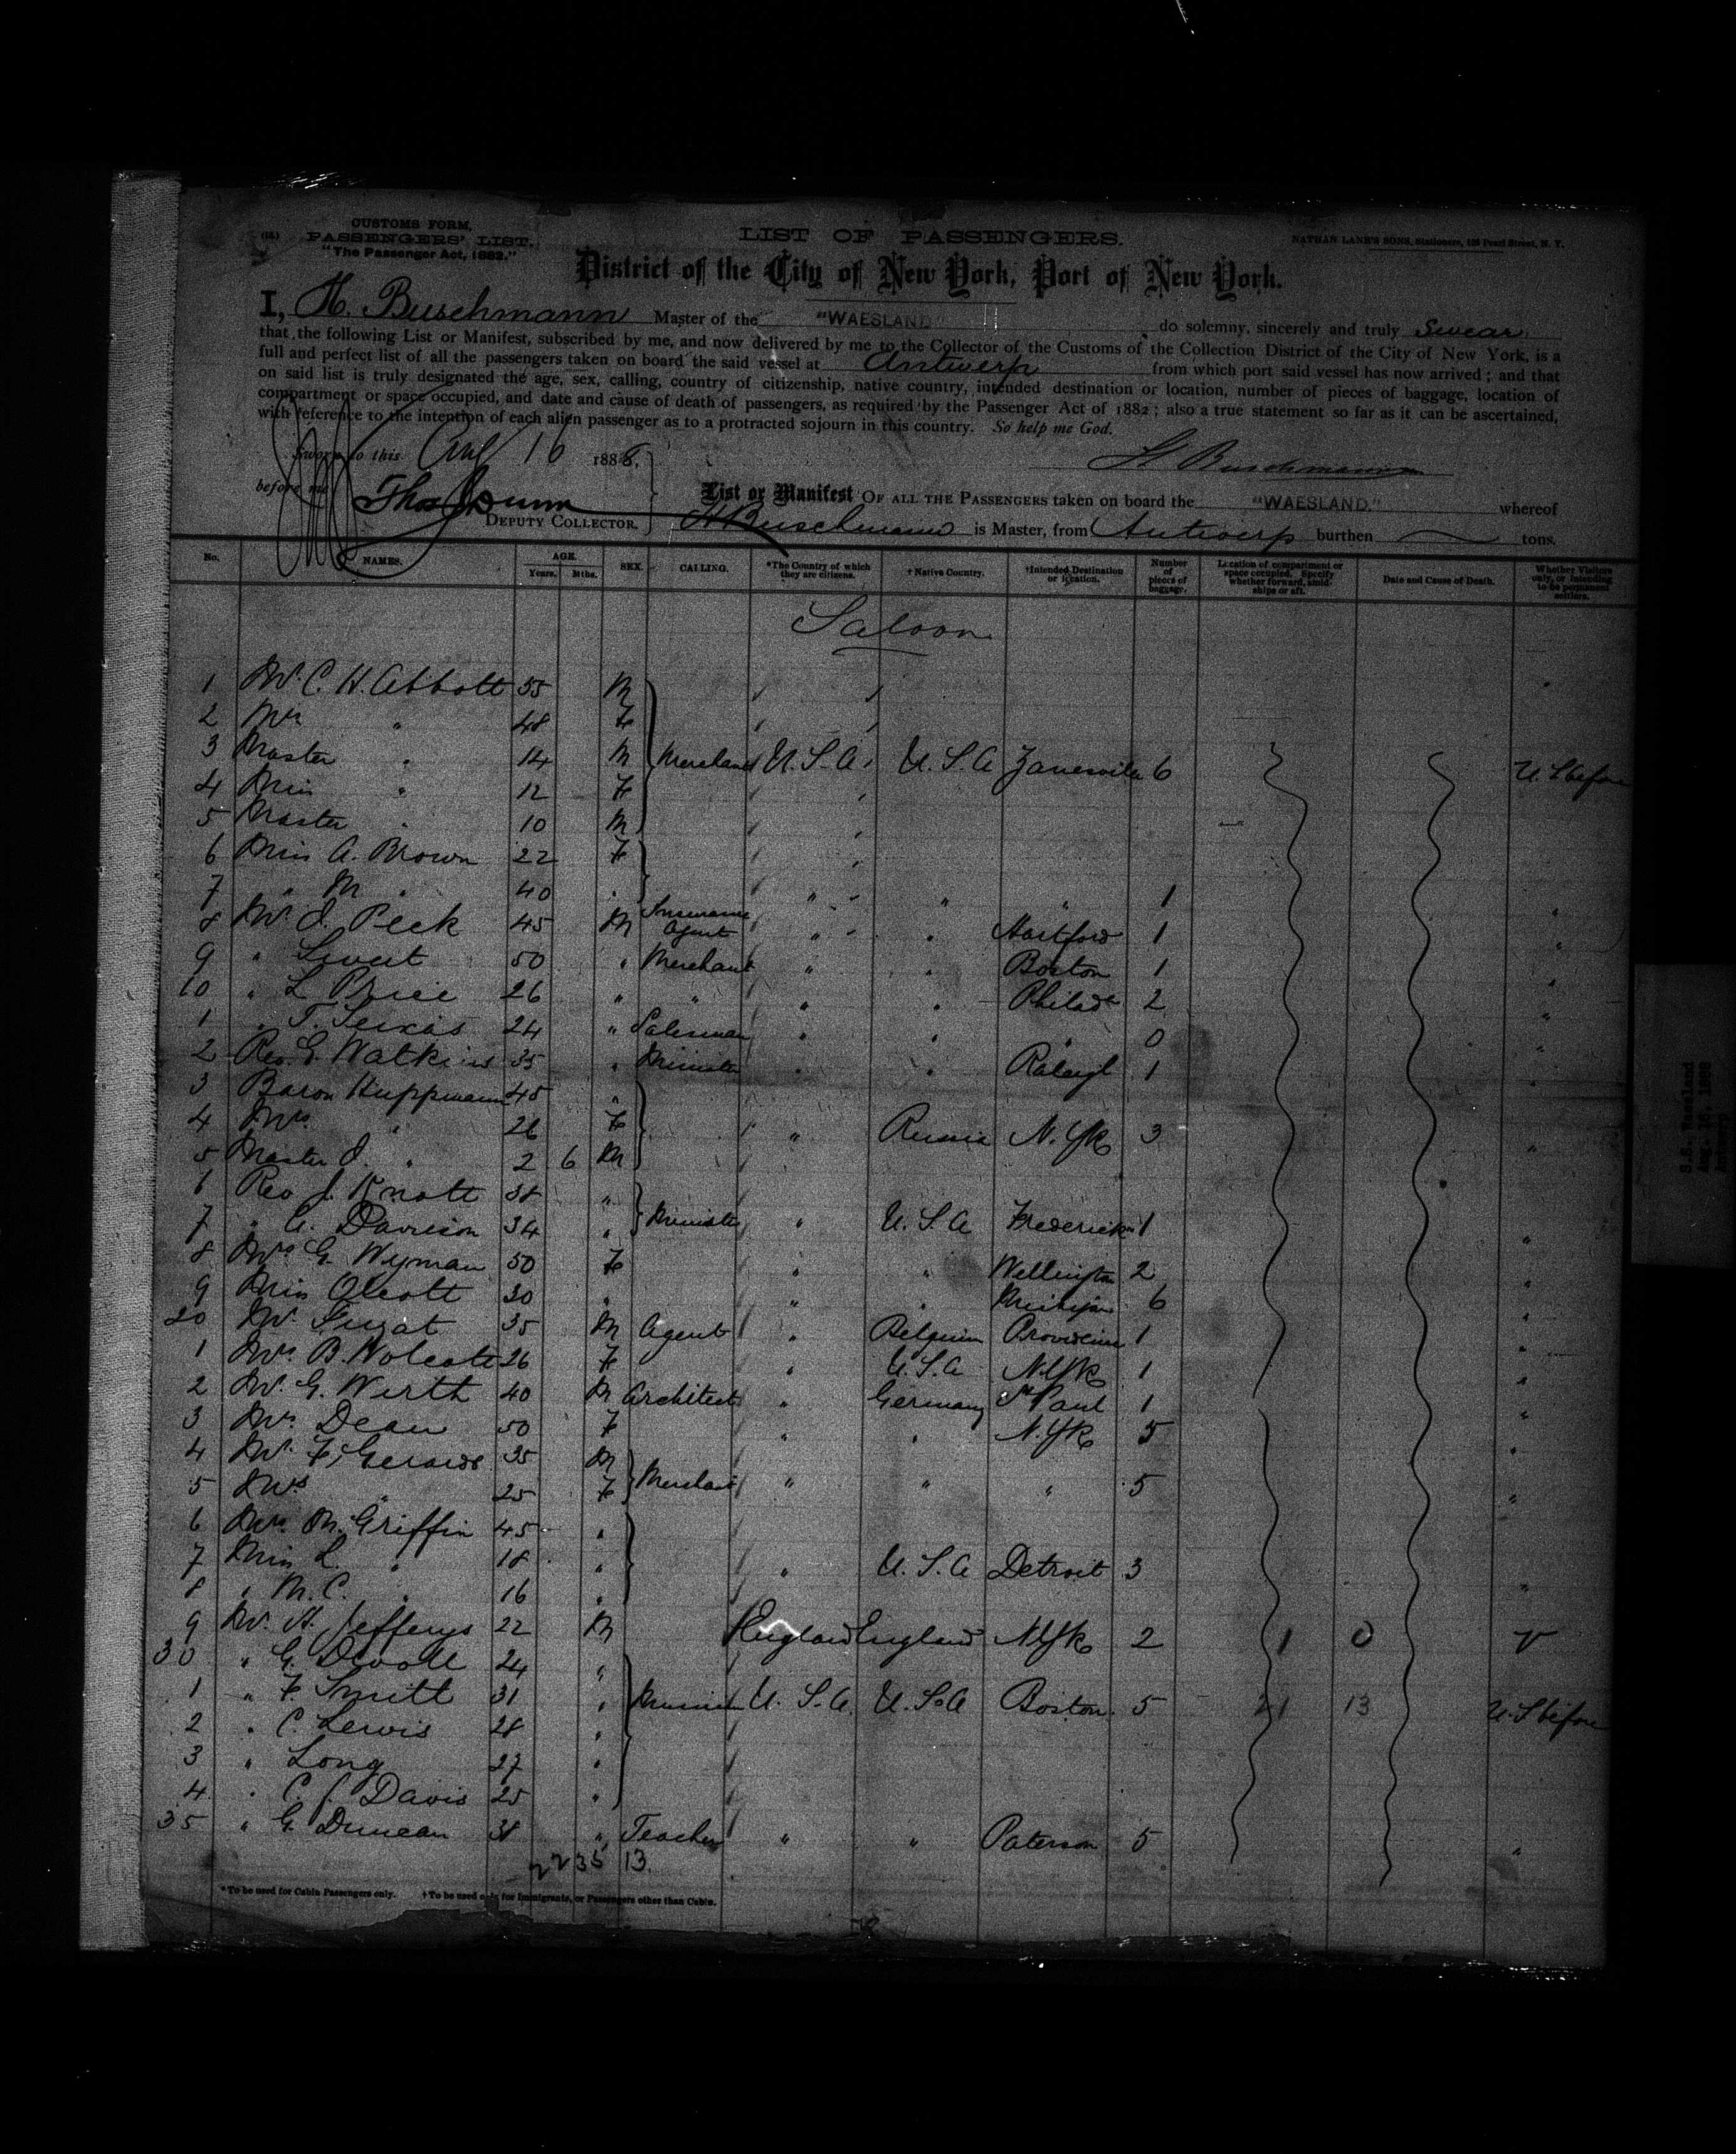 CUSTOMS FORM,
PASSENGERS' LIST.
"The Passenger Act, 1882."
LIST OF PASSENGERS.
NATHAN LANE'S SONS, Stationers, Pearl Street, N. Y.
District of the City of New York, Port of New York.
I, H. Buschmann Master of the "WAESLAND" do solemny, sincerely and truly Swear
that the following List or Manifest, subscribed by me, and now delivered by me to the Collector of the Customs of the Collection District of the City of New York, is a
full and perfect list of all the passengers taken on board the said vessel at Antwerp from which port said vessel has now arrived; and that
on said list is truly designated the age, sex, calling, country of citizenship, native country, intended destination or location, number of pieces of baggage, location of
compartment or space occupied, and date and cause of death of passengers, as required by the Passenger Act of 1882; also a true statement so far as it can be ascertained,
with reference to the intention of each alien passenger as to a protracted sojourn in this country. So help me God.
Sworn to this Aug 16 1886,
H Buschmann
before me
DEPUTY COLLECTOR.
List or Manifest OF ALL THE PASSENGERS taken on board the "WAESLAND" whereof
H Buschmann is Master, from Antwerp burthen tons.
No. NAMES. AGE. Years. Mths. SEX. CALLING. *The Country of which they are citizens. †Native Country. †Intended Destination or location. Number of pieces of baggage. Location of compartment or space occupied. Specify whether forward, amidships or aft. Date and Cause of Death. Whether Visitors only, or intending to be permanent settlers.
Saloon
1 Mr. C. H. Abbott 55 M
2 Mrs " 48 F
3 Master " 14 M Merchant U.S.A. U.S.A Zanesville 6 U.S before
4 Miss " 12 F
5 Master " 10 M
6 Miss A. Brown 22 F
7 " M " 40 " " " " 1
8 Mr. J. Peck 45 M Insurance Agent " " Hartford 1 "
9 " Sweet 50 " Merchant " " Boston 1 "
10 " L Price 26 " " " " Philada 2 "
1 " T. Seixas 24 " Salesman " " " 0 "
2 Rev. G. Watkins 35 " Minister " " Raleigh 1 "
3 Baron Huppmann 45 "
4 Mrs " 26 F " Russia N.Yk 3 "
5 Master J. " 2 6 M
6 Rev J. Knott 38 "
7 " A. Davison 34 " Minister " U.S.A Frederick 1 "
8 Mrs G. Wyman 50 F " " Wellington 2 "
9 Miss Olcott 30 " " " Michigan 6 "
20 Mr. 35 M Agent " Belgium Providence 1 "
1 Mrs. B. Wolcott 26 F " U.S.A N.Yk 1 "
2 Mr. G. Wirth 40 M Architect " Germany St Paul 1 "
3 Mrs Dean 50 F " " N.Yk 5 "
4 Mr. F. Gerards 35 M
5 Mrs " 25 F Merchant " " " 5 "
6 Mrs. M. Griffin 45 "
7 Miss L. " 18 " " U.S.A Detroit 3 "
8 " M.C. " 16 "
9 Mr. H. Jefferys 22 M England England N.Yk 2 1 0 V
30 " G. 24 "
1 " F. Smith 31 " U.S.A. U.S.A Boston 5 21 13 U.S before
2 " C. Lewis 28 "
3 " Long 27 "
4 " C. J. Davis 25 "
35 " G. Duncan 38 " Teacher " " Paterson 5 "
22 35 13.
*To be used for Cabin Passengers only. †To be used only for Immigrants, or Passengers other than Cabin.
S.S. Waesland
Aug. 16, 1886